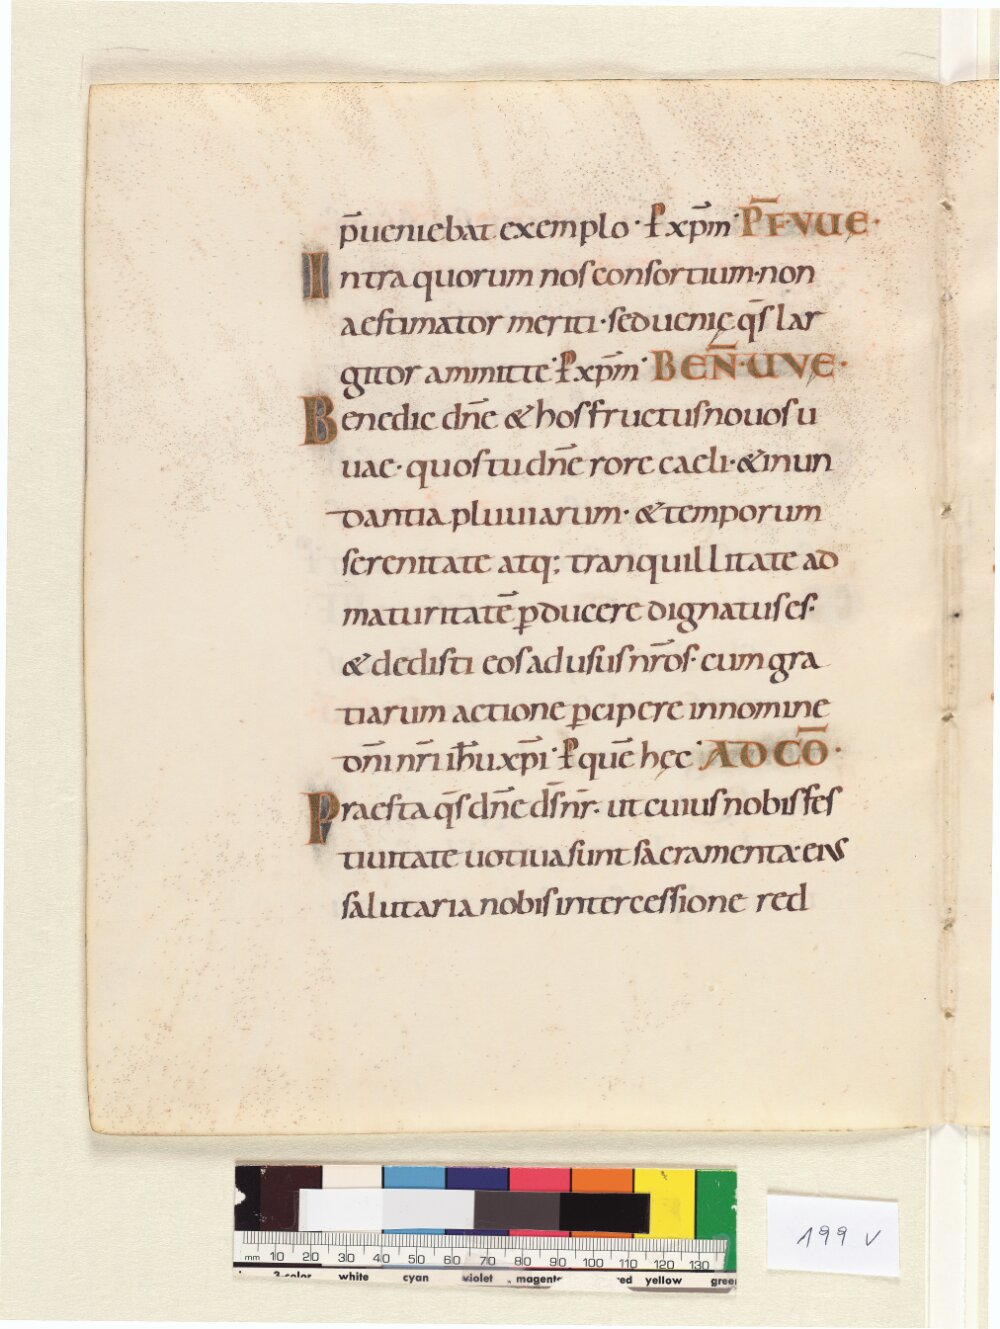 p̄ueniebat exemplo · ꝑ xp̄m · P̄F·VUE·
Intra quorum nos consortium·non
aestimator meriti·sed uenię q̄s lar
gitor ammitte · ꝑ xp̄m · BEN̄·UVE·
Benedic dn̄e & hos fructus nouos u
uae· quos tu dn̄e rore caeli·& inun
dantia pluuiarum· & temporum
serenitate atq; tranquillitate ad
maturitatē ꝑducere dignatus es·
& dedisti eos ad usus nr̄os· cum gra
tiarum actione ꝑcipere in nomine
dn̄i nr̄i ih̄u xp̄i · ꝑ quē hęc · AD CŌ ·
Praesta q̄s dn̄e ds̄ nr̄· ut cuius nobis fes
tiuitate uotiua sunt sacramenta·eius
salutaria nobis intercessione red
199 v
mm 10 20 30 40 50 60 70 80 90 100 110 120 130
3-color white cyan violet magenta red yellow green